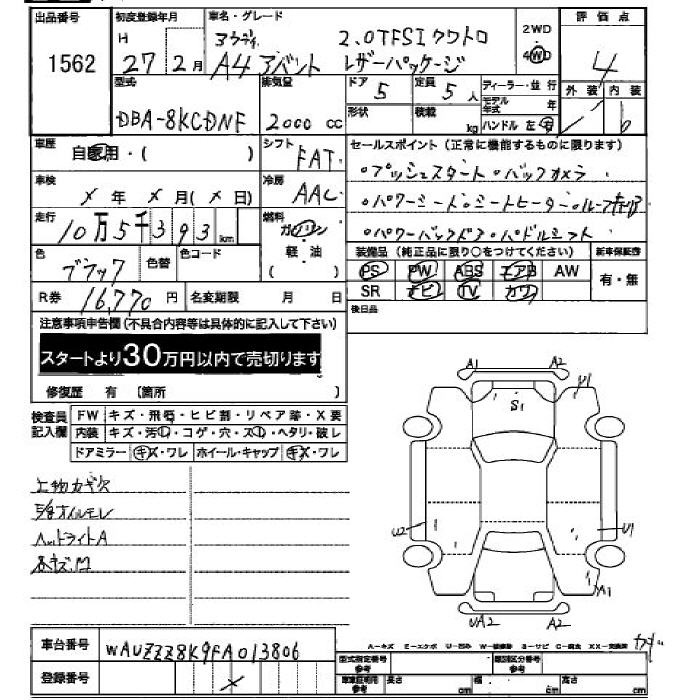 出品番号 初度登録年月 車名・グレード 評価点
1562
H 27 2月
アウディ A4 アバント 2.0TFSI クワトロ レザーパッケージ
2WD
4WD
4
外装 内装
型式 排気量 ドア 定員 ディーラー・並行
DBA-8KCDNF 2000 cc 5 5人
形状 積載 kg モデル年式 年
ハンドル 左・右
車歴 自家用・( ) シフト FAT
セールスポイント(正常に機能するものに限ります)
・プッシュスタート・バックカメラ
車検 ×年×月(×日) 冷房 AAC
・パワーシート・シートヒーター・
走行 10万5千393km 燃料 ガソリン・軽油
・パワーバックドア・パドルシフト
色 ブラック 色替 色コード
装備品(純正品に限り○をつけてください) 新車保証書
PS PW ABS エアB AW 有・無
SR ナビ TV カワ
R券 16,770円 名変期限 月 日
後日品
注意事項申告欄(不具合内容等は具体的に記入して下さい)
スタートより30万円以内で売切ります
修復歴 有 〔箇所 〕
検査員記入欄 FW キズ・飛石・ヒビ割・リペア跡・X要
内装 キズ・汚レ・コゲ・穴・スレ・ヘタリ・破レ
ドアミラー キズ・ワレ ホイール・キャップ キズ・ワレ
ヘッドライトA
A1 A2
S1
U2 U1
A1
UA2 A2
A-キズ E-エクボ U-凹ミ W-補修跡 S-サビ C-腐食 XX-交換済
車台番号 WAUZZZ8K9FA013806
登録番号 ×
型式指定番号 参考 類別区分番号 参考
車庫証明用 参考 長さ cm 幅 cm 高さ cm